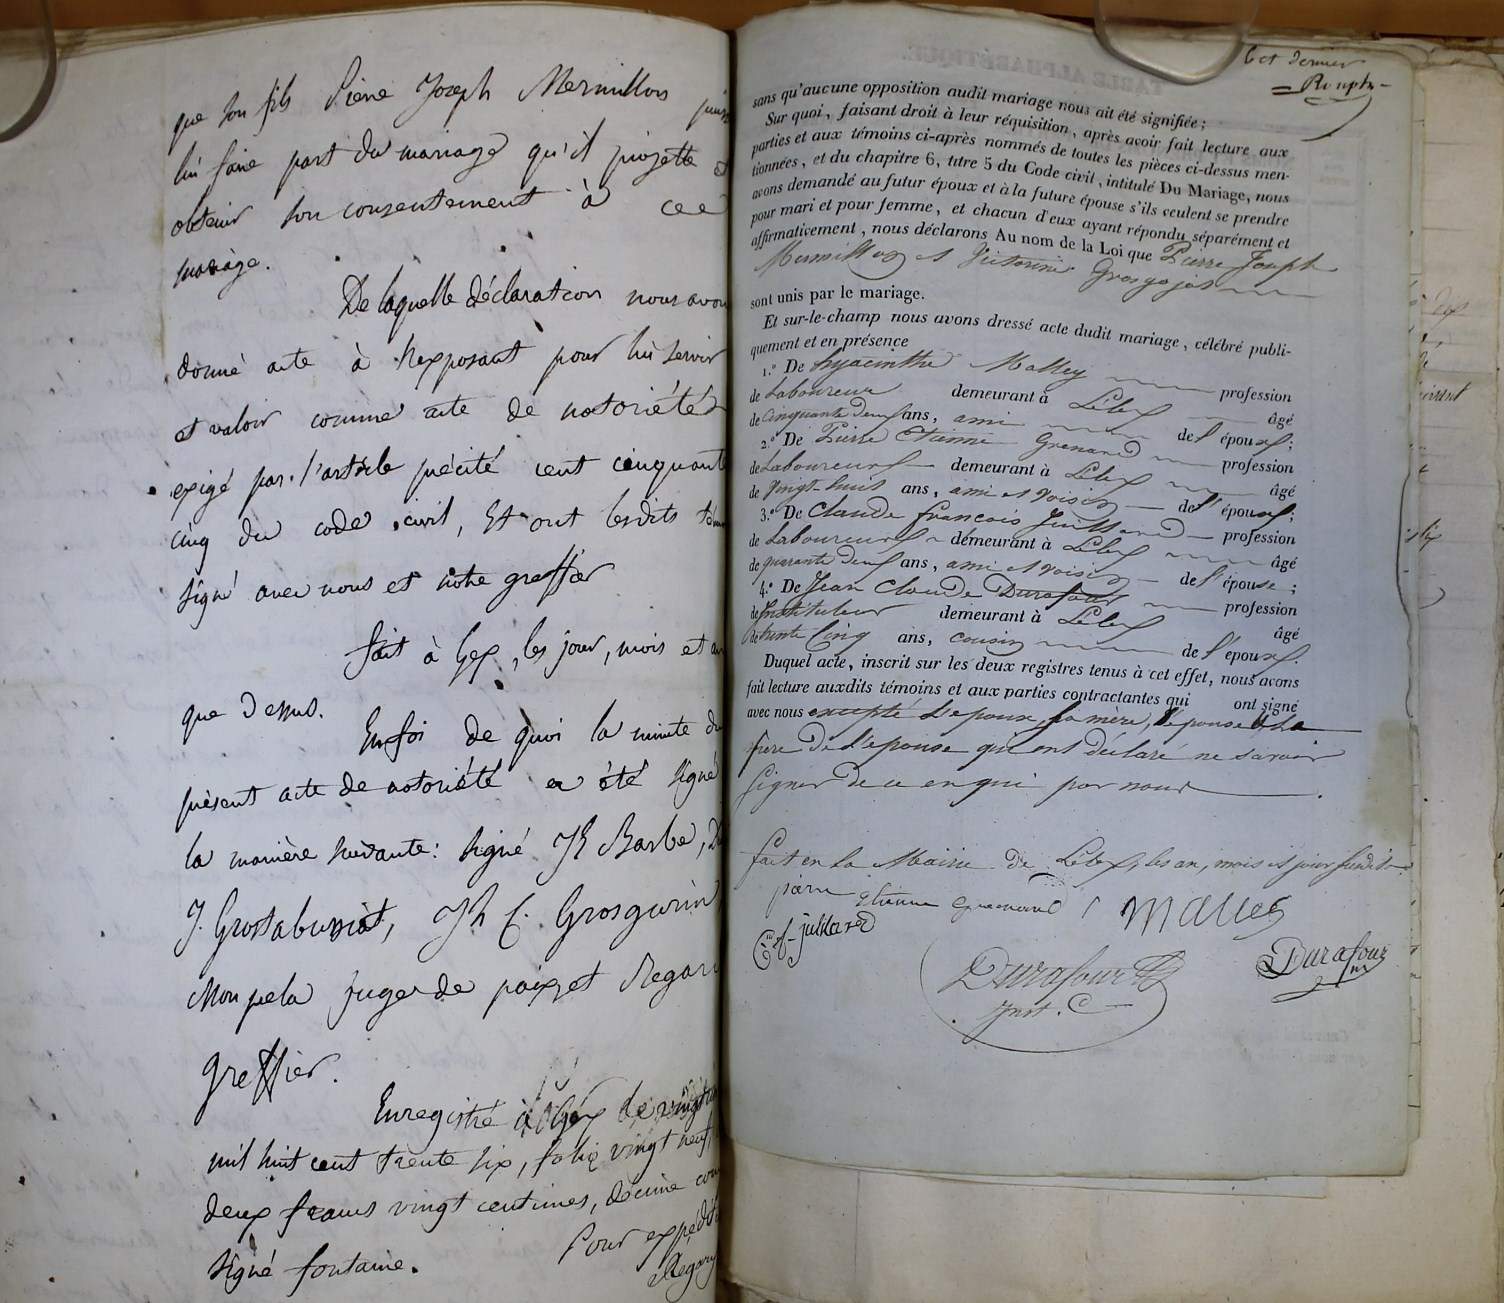 que son fils Pierre Joseph Mermillon puisse
lui faire part du mariage qu'il projette et
obtenir son consentement à cee
mariage.
De laquelle déclaration nous avons
donné acte à l'exposant pour lui servir
et valoir comme acte de notoriété
exigé par l'article précité cent cinquante
cinq du code civil, Et ont lesdits
signé avec nous et notre greffier
fait à Gex, les jour, mois et an
que dessus.
En foi de quoi la minute du
présent acte de notoriété a été signé
la manière suivante: signé Jh Barbe,
J. Grostabussiat, Jh C. Grosgurin,
Monpela juge de paix et Regard
greffier.
Enregistré à Gex le vingt
mil huit cent trente six, folio vingt neuf
deux francs vingt centimes, décime
signé fontaine.
Pour expédit
Regard
6 et dernier
sans qu'aucune opposition audit mariage nous ait été signifiée;
Sur quoi, faisant droit à leur réquisition, après avoir fait lecture aux
parties et aux témoins ci-après nommés de toutes les pièces ci-dessus men-
tionnées, et du chapitre 6, titre 5 du Code civil, intitulé Du Mariage, nous
avons demandé au futur époux et à la future épouse s'ils veulent se prendre
pour mari et pour femme, et chacun d'eux ayant répondu séparément et
affirmativement, nous déclarons Au nom de la Loi que Pierre Joseph
Mermillon et Victorine Grosgojat
sont unis par le mariage.
Et sur-le-champ nous avons dressé acte dudit mariage, célébré publi-
quement et en présence
1.° De hyacinthe Malley profession
de Laboureur demeurant à Lélex âgé
de Cinquante deux ans, ami de l'époux;
2.° De Pierre Etienne Grenard profession
de Laboureur demeurant à Lélex âgé
de vingt-huit ans, ami et voisin de l'époux;
3.° De Claude françois Juilland profession
de Laboureur demeurant à Lélex âgé
de quarante deux ans, ami et voisin de l'épouse;
4.° De Jean Claude Durafour profession
de Instituteur demeurant à Lélex âgé
de trente Cinq ans, cousin de l'époux.
Duquel acte, inscrit sur les deux registres tenus à cet effet, nous avons
fait lecture auxdits témoins et aux parties contractantes qui ont signé
avec nous excepté l'époux, sa mère, l'épouse et le
père de l'épouse qui ont déclaré ne savoir
signer de ce enquis par nous
fait en la Mairie de Lélex, les an, mois et jour susdits
piere Etienne Grenard Malley
C f juillard
Durafour
Inst. C
Durafour